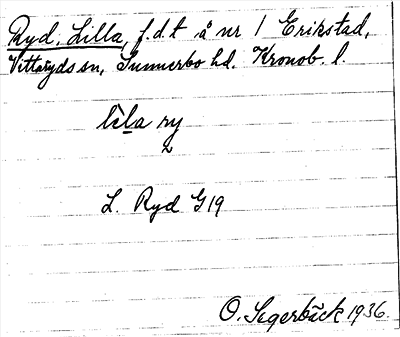 Ryd, Lilla, f.d.t å nr 1 Erikstad,
Vittaryds sn, Sunnerbo hd. Kronob. l.
lìla ry
L. Ryd G 19
O. Segerbäck 1936.